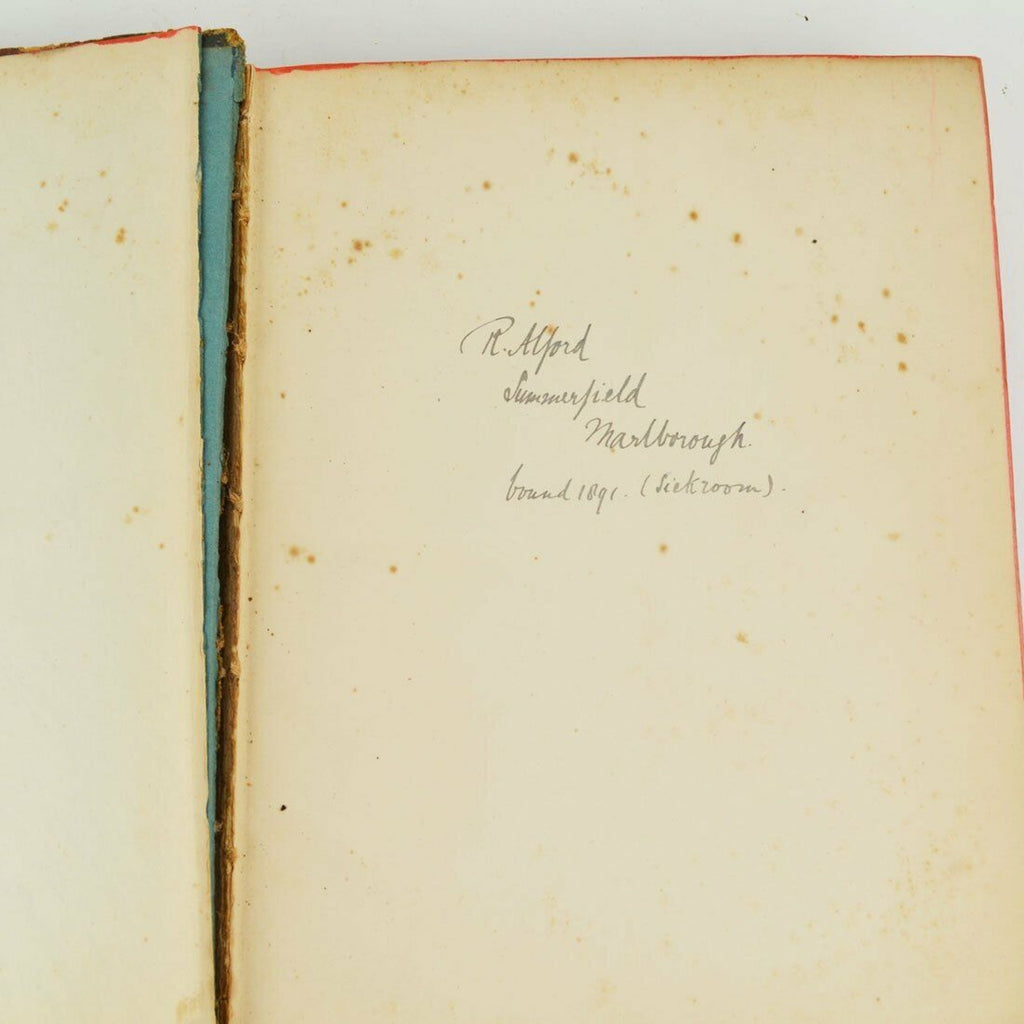 R. Alford
Summerfield
Marlborough.
bound 1891. (Sickroom).